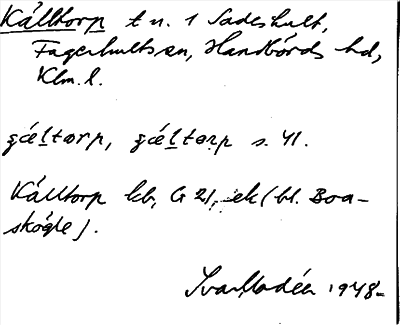 Källtorp t n. 1 Sadeshult,
Fagerhults sn, Handbörds hd,
Klm. l.
s. 41.
Källtorp kb, G 21, ek (bl. Boa-
skögle).
Svartladén 1948-